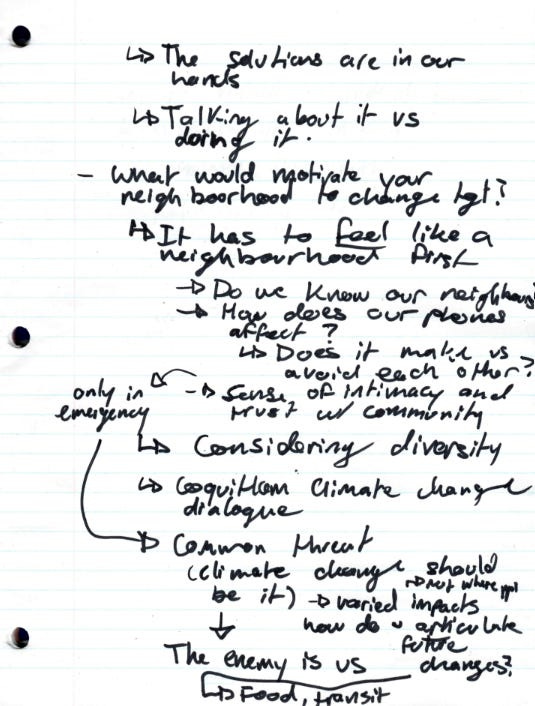 ↳ The solutions are in our
hands
↳ Talking about it vs
doing it.
- What would motivate your
neighboorhood to change tgt?
↳ It has to feel like a
neighbourhood first
→ Do we know our neighbours
→ How does our phones
affect?
↳ Does it make us
avoid each other?
only in
emergency
→ Sense of intimacy and
trust w/ community
↳ Considering diversity
↳ Coquitlam Climate change
dialogue
→ Common threat
(climate change should
be it) → varied impacts
→ not where ppl
how do u articulate
future
changes?
↓
The enemy is us
↳ Food, transit